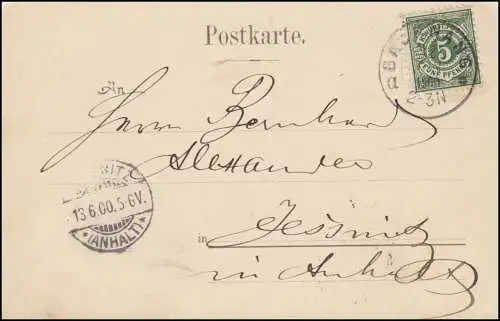 Postkarte.
5
FÜNF PFENNIG
2-3N
An
Herrn Bernhard
Alexander
in Jessnitz
in Anhalt
13.6.00.5-6V.
*(ANHALT)*